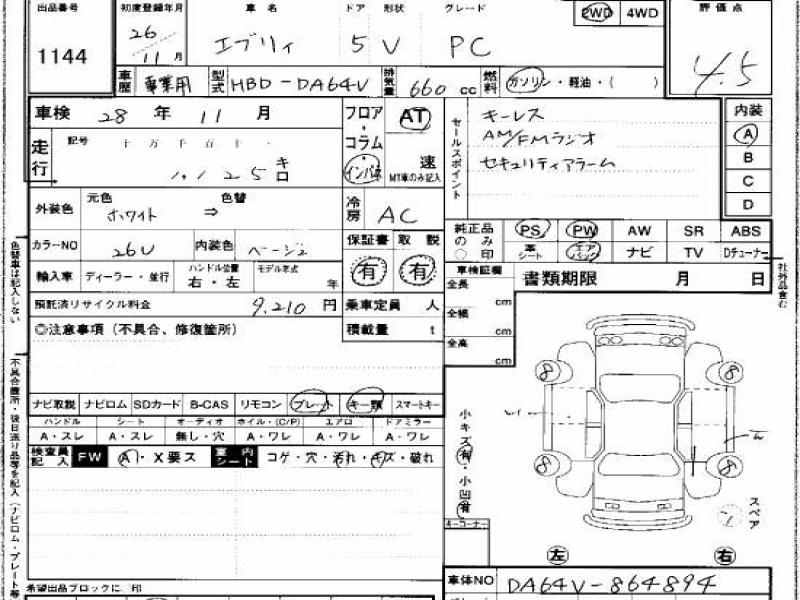 出品番号 1144
初度登録年月 26年11月
車名 エブリィ
ドア 5 形状 V
グレード PC
2WD 4WD
評価点 4.5
車歴 事業用
型式 HBD-DA64V
排気量 660 cc
燃料 ガソリン・軽油・( )
車検 28年 11月
走行 記号 十万千百十・ 1,125 キロ
フロア・コラム・インパネ
AT
速
MT車のみ記入
セールスポイント
キーレス
AM/FMラジオ
セキュリティアラーム
内装 A B C D
外装色 元色 ホワイト ⇒ 色替
冷房 AC
カラーNO 26U 内装色 ベージュ
保証書 有 取説 有
純正品のみ○印 PS PW AW SR ABS
革シート エアバッグ ナビ TV Dチューナー
輸入車 ディーラー・並行 ハンドル位置 右・左 モデル年式 年
車検証欄 書類期限 月 日
全長 cm
全幅 cm
全高 cm
預託済リサイクル料金 9,210 円
乗車定員 人
積載量 t
◎注意事項(不具合、修復箇所)
ナビ取説 ナビロム SDカード B-CAS リモコン プレート キー類 スマートキー
ハンドル シート オーディオ ホイル・(C/P) エアロ ドアミラー
A・スレ A・スレ 無し・穴 A・ワレ A・ワレ A・ワレ
検査員記入 FW A・X要ス 車内シート コゲ・穴・汚れ・キズ・破れ
小キズ有・小凹有
キーコーナー
8 8
8 8
スペア
左 右
希望出品ブロックに、印
車体NO DA64V-864894
色替車は記入しない
不具合箇所・後日送り品等を記入(ナビロム・プレート等
社外品含む